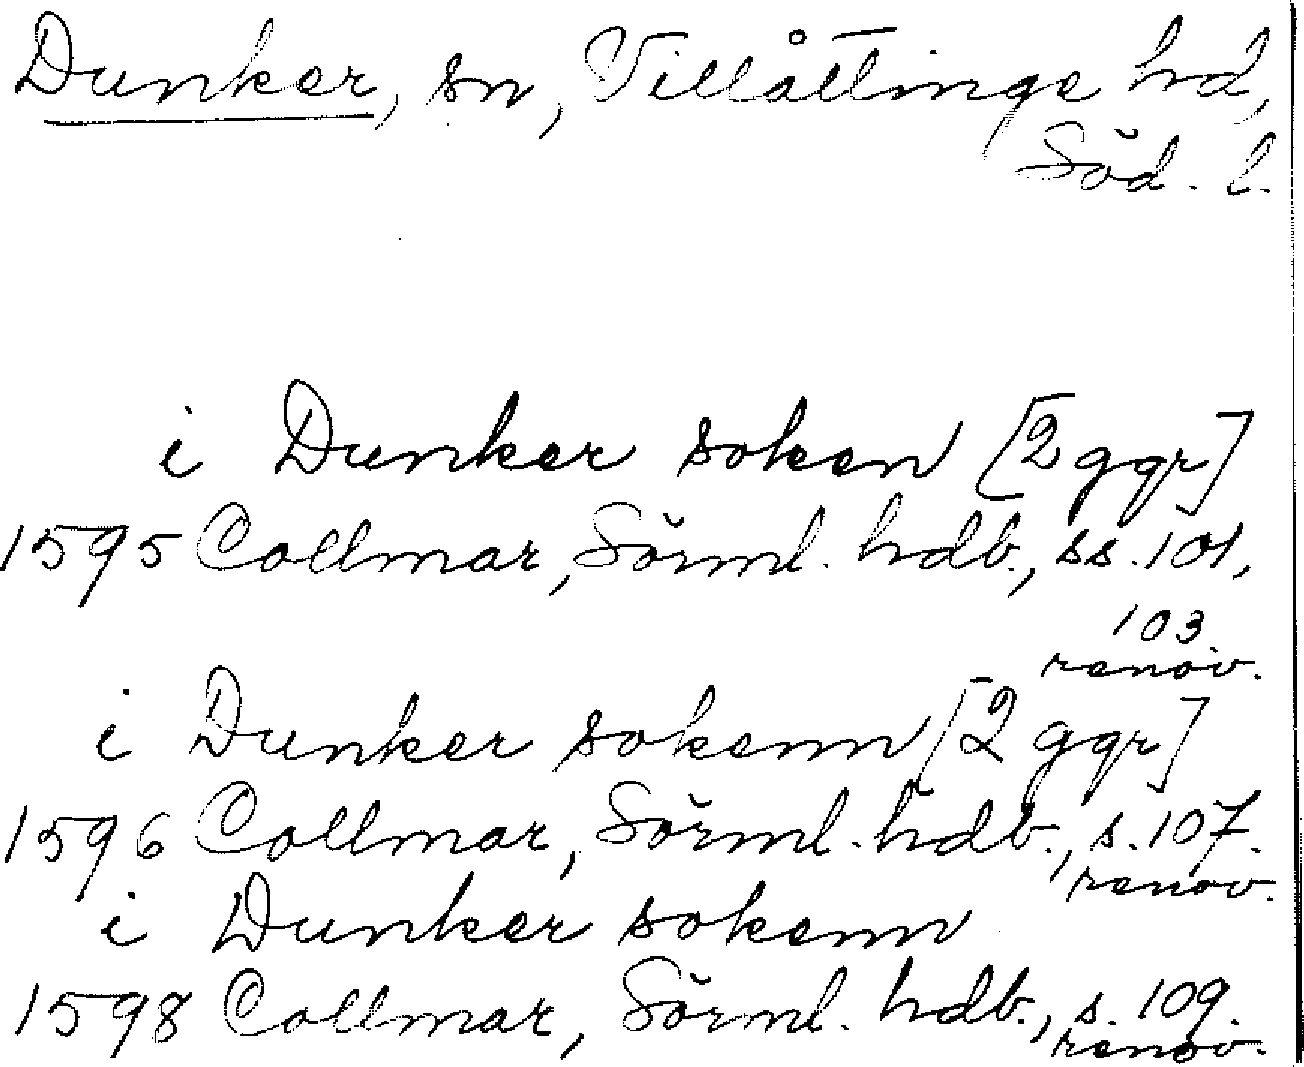 Dunker, sn, Villåttinge hd,
Söd. l.
i Dunker soken [2 ggr]
1595 Collmar, Sörml. hdb., ss. 101,
103
renov.
i Dunker sokenn [2 ggr]
1596 Collmar, Sörml. hdb., s. 107.
renov.
i Dunker sokenn
1598 Collmar, Sörml. hdb., s. 109.
renov.